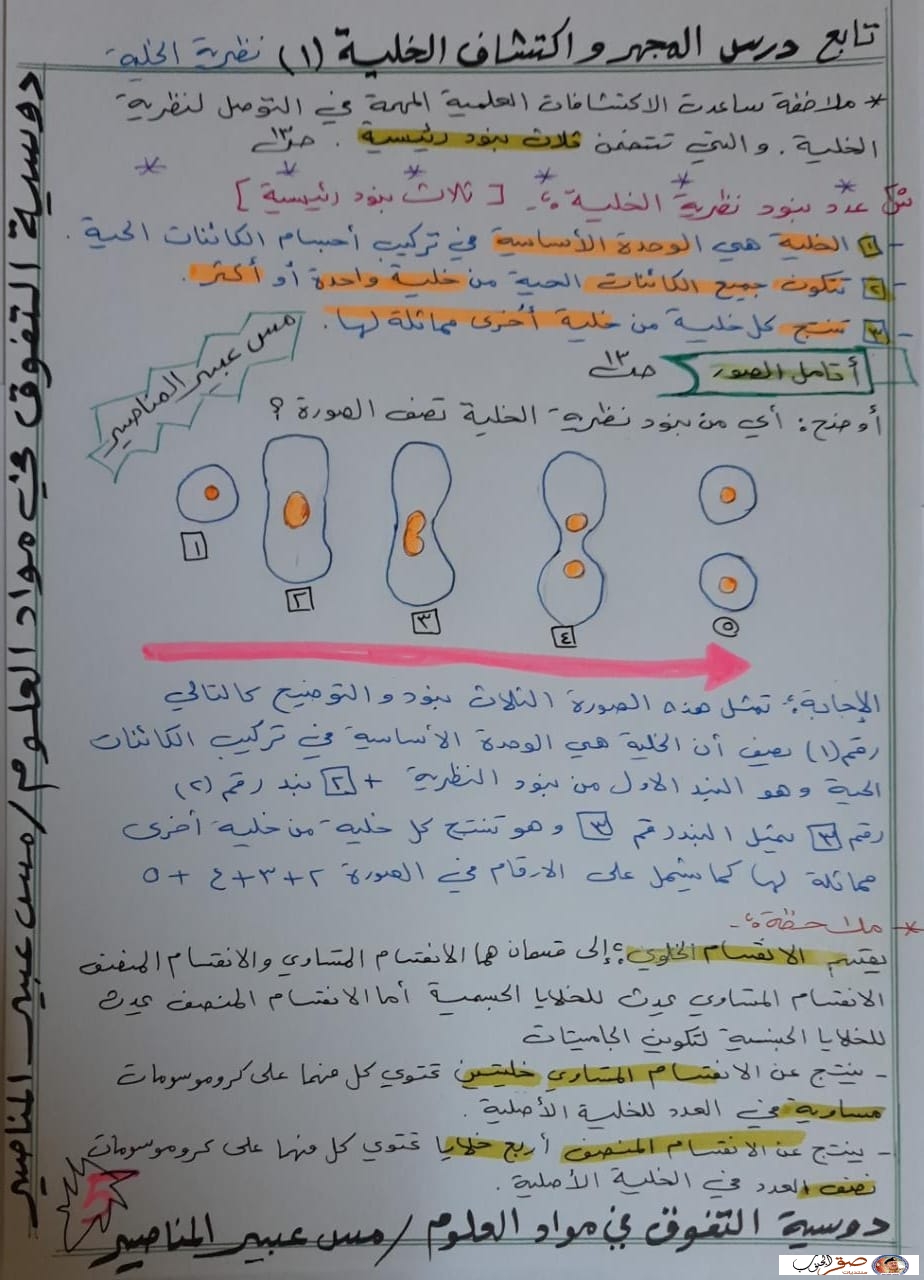 تابع درس المجهر واكتشاف الخلية (١) نظرية الخلية
* ملاحظة ساعدت الاكتشافات العلمية المهمة في التوصل لنظرية
الخلية. والتي تتضمن ثلاث بنود رئيسية. ص١٣
س عدد بنود نظرية الخلية؟ [ثلاث بنود رئيسية]
- ١ الخلية هي الوحدة الأساسية في تركيب أجسام الكائنات الحية.
- ٢ تتكون جميع الكائنات الحية من خلية واحدة أو أكثر.
- ٣ تنتج كل خلية من خلية أخرى مماثلة لها.
مس عبير المناصير
أتامل الصور ص١٣
أوضح: أي من بنود نظرية الخلية تصف الصورة؟
١ ٢ ٣ ٤ ٥
الإجابة: تمثل هذه الصورة الثلاث بنود والتوضيح كالتالي
رقم (١) يصف أن الخلية هي الوحدة الأساسية في تركيب الكائنات
الحية وهو البند الاول من بنود النظرية + ٢ بند رقم (٢)
رقم ٣ يمثل البند رقم ٣ وهو تنتج كل خلية من خلية أخرى
مماثلة لها كما يشمل على الارقام في الصورة ٢+٣+٤+٥
* ملاحظة:-
يقسم الانقسام الخلوي: إلى قسمان هما الانقسام المتساوي والانقسام المنصف
الانقسام المتساوي يحدث للخلايا الجسمية أما الانقسام المنصف يحدث
للخلايا الجنسية لتكوين الجاميتات
- ينتج عن الانقسام المتساوي خليتين تحتوي كل منهما على كروموسومات
مساوية في العدد للخلية الأصلية.
- ينتج عن الانقسام المنصف أربع خلايا تحتوي كل منها على كروموسومات
نصف العدد في الخلية الأصلية.
دوسية التفوق في مواد العلوم / مس عبير المناصير
دوسية التفوق في مواد العلوم / مس عبير المناصير
صقر الجنوب
منتديات